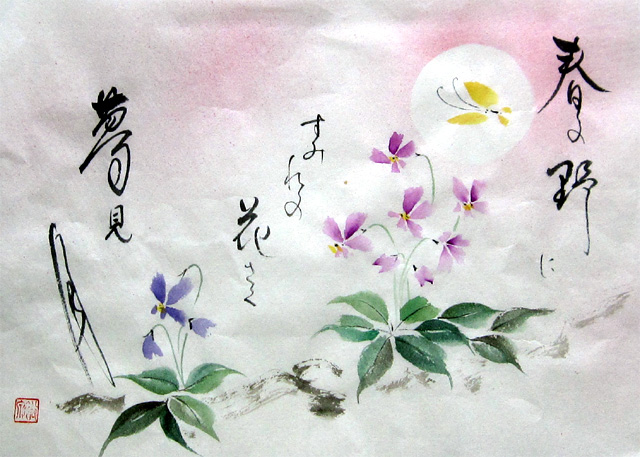 春の野に
すみれの
花さく
夢見